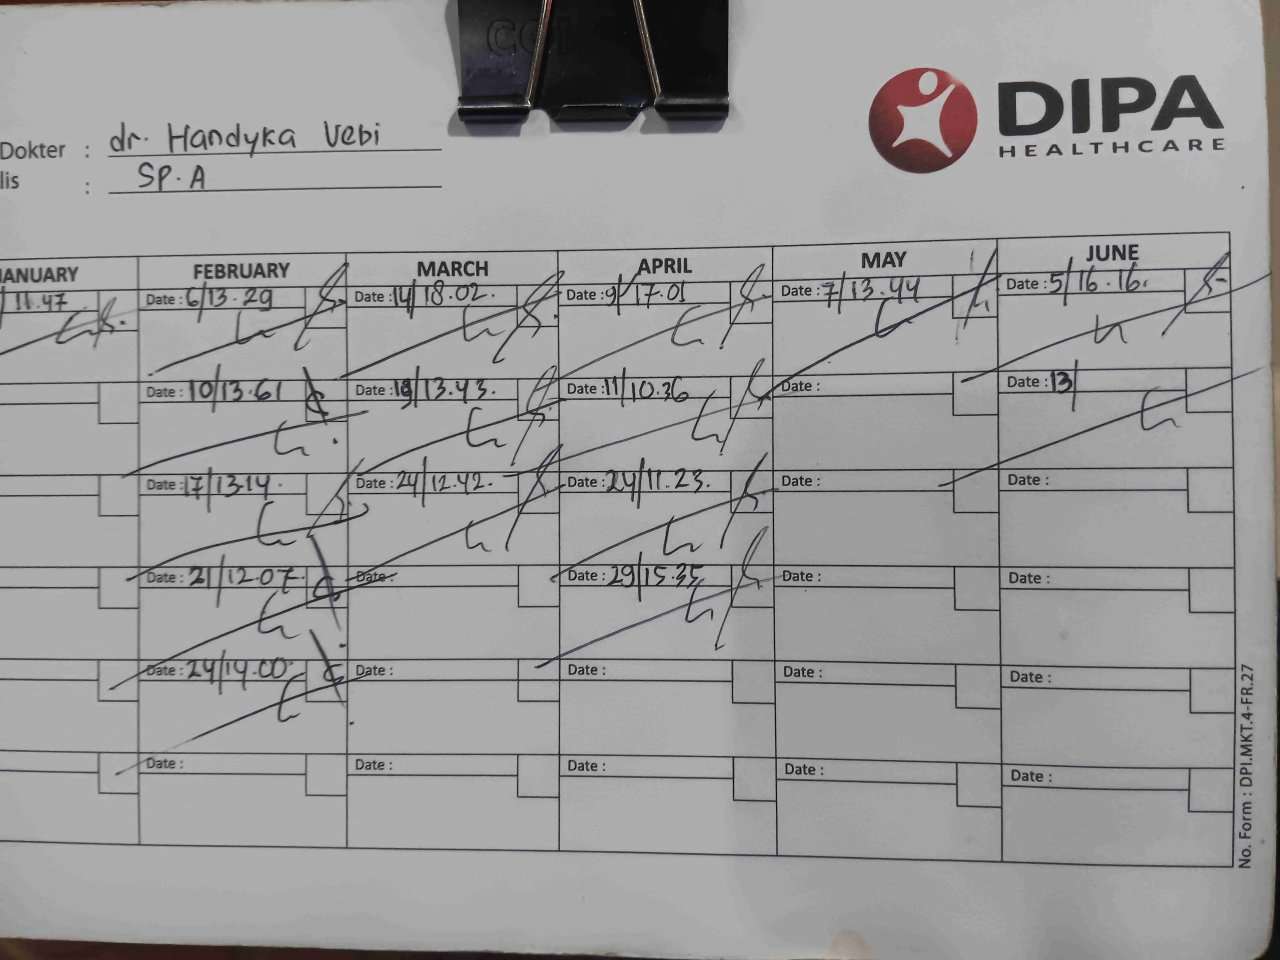 DIPA
HEALTHCARE
Dokter : dr. Handyka Vebi
lis : SP.A
ANUARY FEBRUARY MARCH APRIL MAY JUNE
/ 11.47 Date : 6/13.29 Date : 14/18.02. Date : 9/17.01 Date : 7/13.44 Date : 5/16.16.
Date : 10/13.61 Date : /13.43. Date : 11/10.36 Date : Date : 13/
Date : 17/13.14. Date : 24/12.42. Date : 24/11.23. Date : Date :
Date : 21/12.07. Date : Date : 29/15.35 Date : Date :
Date : 24/14.00. Date : Date : Date : Date :
Date : Date : Date : Date : Date :
No. Form : DPI.MKT.4-FR.27